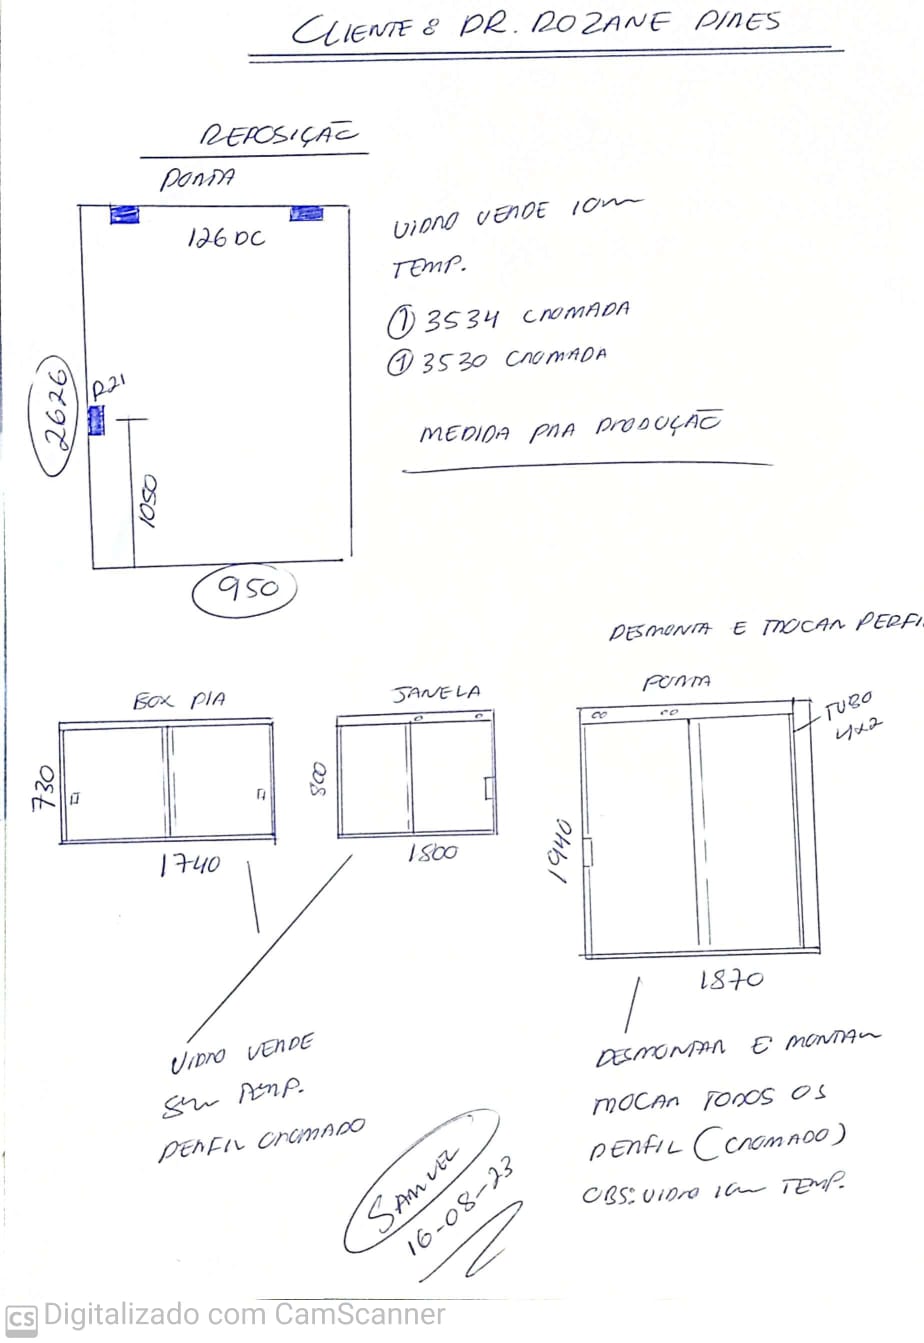 CLIENTE: DR. ROZANE PIRES
REPOSIÇÃO
PORTA
126 DC
2626
R21
1050
950
VIDRO VERDE 10mm
TEMP.
① 3534 CROMADA
① 3530 CROMADA
MEDIDA PRA PRODUÇÃO
DESMONTA E TROCAR PERFI
BOX PIA
730
1740
JANELA
800
1800
PORTA
TUBO
4x2
1940
1870
VIDRO VERDE
8mm TEMP.
PERFIL CROMADO
DESMONTAR E MONTAR
TROCAR TODOS OS
PERFIL (CROMADO)
OBS: VIDRO 10mm TEMP.
SAMUEL
16-08-23
CS Digitalizado com CamScanner